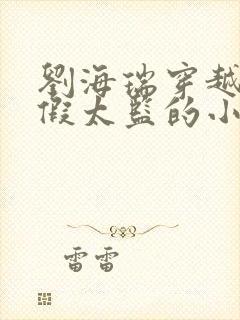 劉海瑞穿越
假太監的小
雷雷